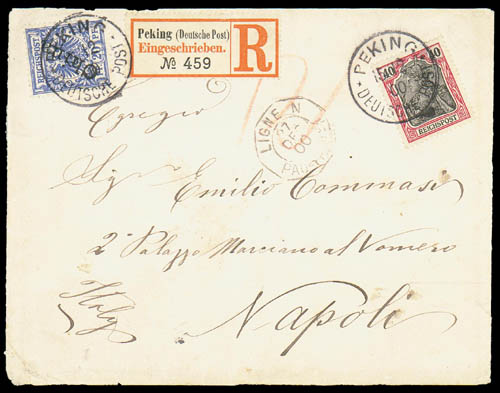 PEKING
DEUTSCHE POST
REICHSPOST
20
Peking (Deutsche Post)
Eingeschrieben.
№ 459
R
PEKING
DEUTSCHE POST
40
REICHSPOST
LIGNE N
27
DEC
00
Egregio
Sig Emilio Commasi
2° Palazzo Marciano al Vomero
Napoli
Italy